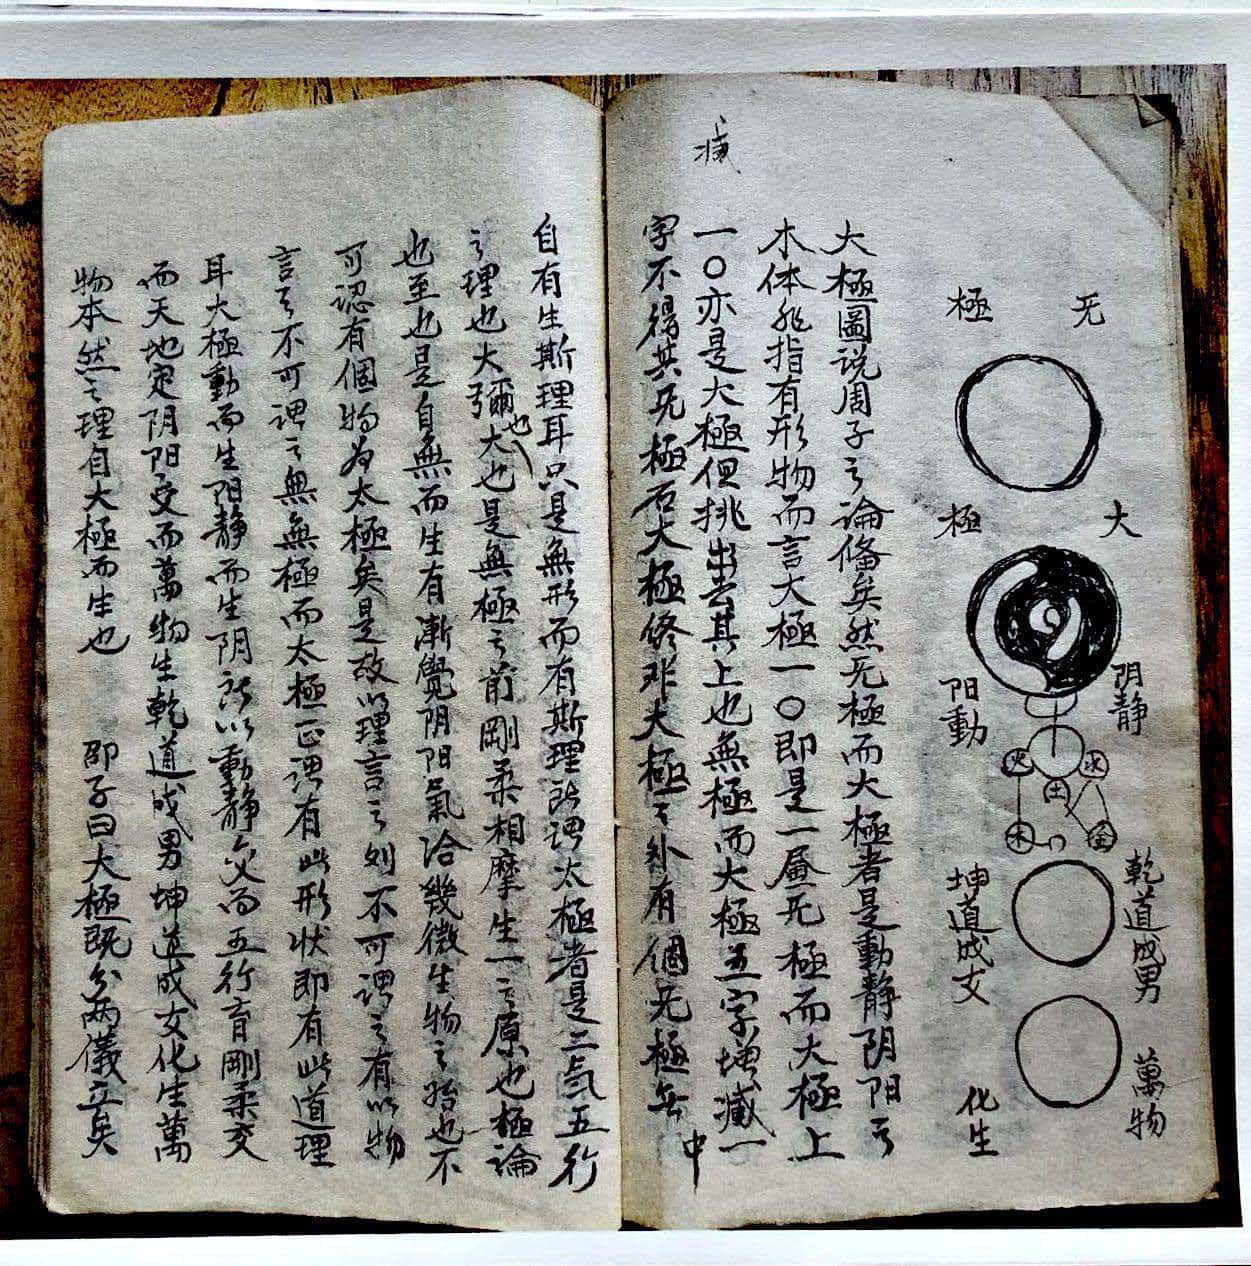 无極
大極
阴静
阳動
火
水
土
木
金
乾道成男
坤道成女
萬物
化生
大極圖说周子之論俻矣然无極而大極者是動静阴阳之
本体非指有形物而言大極一〇即是一屇无極而大極上
減
一〇亦是大極但挑出去其上也無極而大極五字增減一
字不得其无極右大極终非大極之外有個无極矣
中
自有生斯理耳只是無形而有斯理所謂太極者是二氣五行
之理也大彌大也是無極之前剛柔相摩生一之原也極論
也
也至也是自無而生有漸覺阴阳氣洽幾微生物之始也不
可認有個物為太極矣是故以理言之则不可謂之有以物
言之不可謂之無無極而太極正謂有此形状即有此道理
耳大極動而生阳静而生阴所以動静交而五行育剛柔交
而天地定阴阳交而萬物生乾道成男坤道成女化生萬
物本然之理自大極而生也 邵子曰大極既分两儀立矣